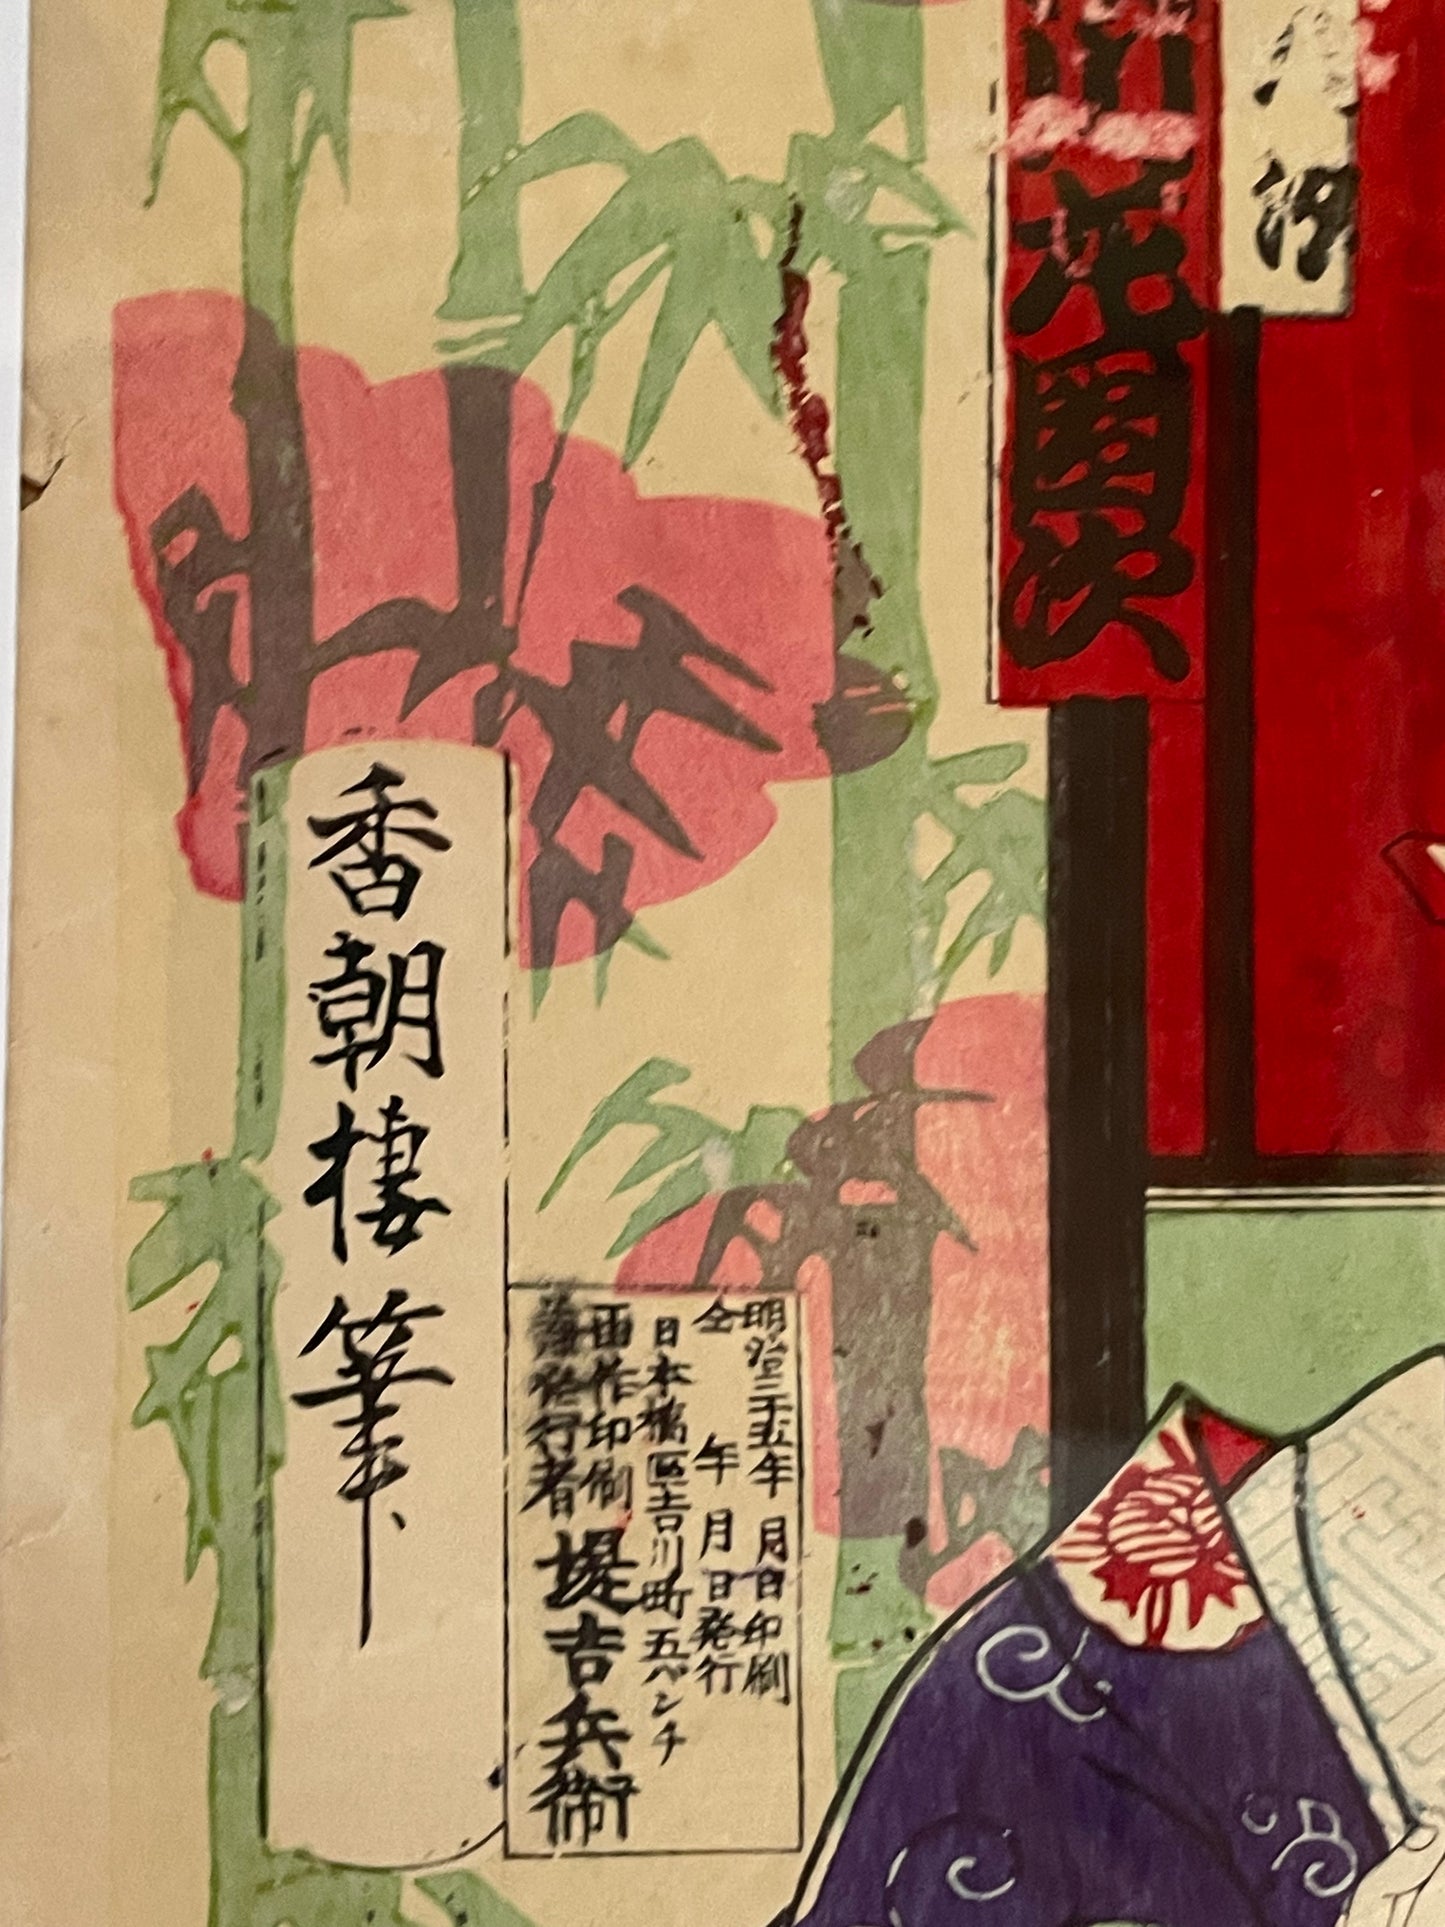 花園次
香朝楼筆
明治三十五年 月 日印刷
仝 年 月 日発行
日本橋区吉川町五バンチ
画作印刷
兼発行者 堤吉兵衛